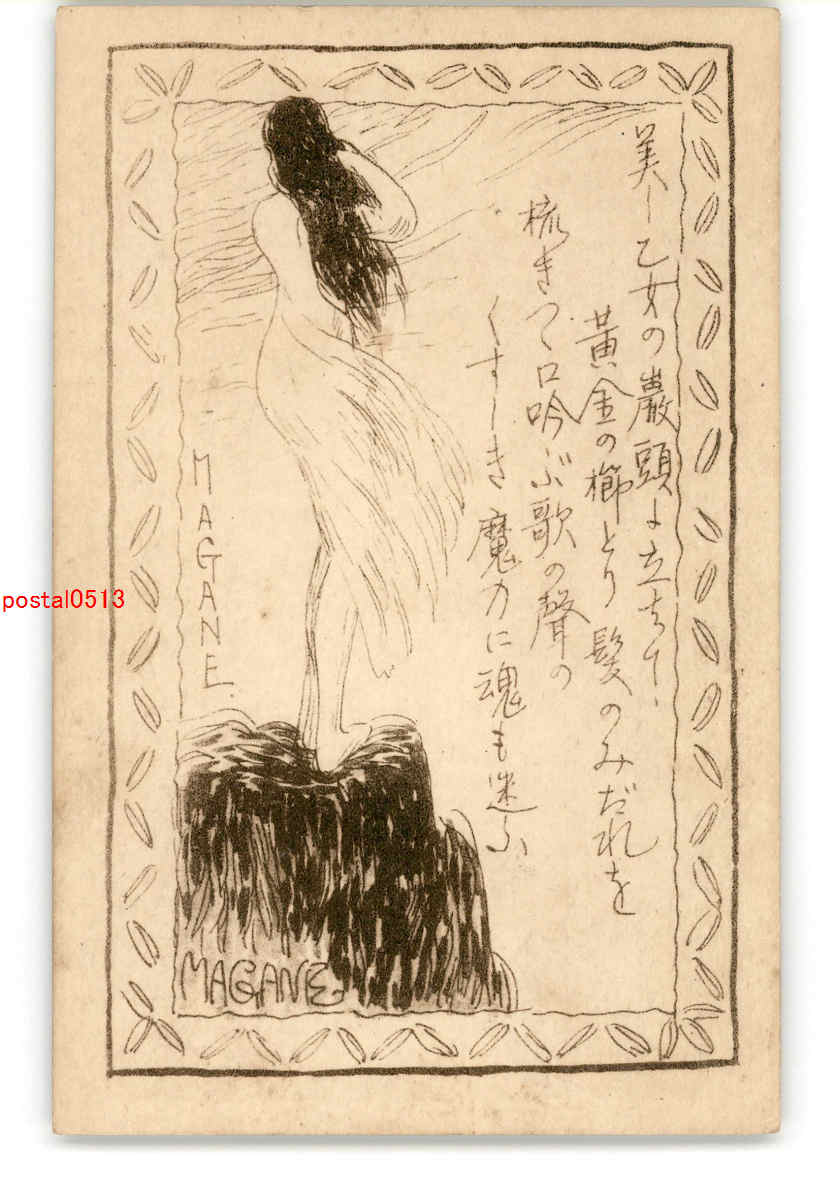 美し乙女の巖頭に立ちて
黄金の櫛とり髮のみだれを
梳きつゝ口吟ぶ歌の聲の
くすしき魔力に魂も迷ふ
MAGANE.
MAGANE
postal0513